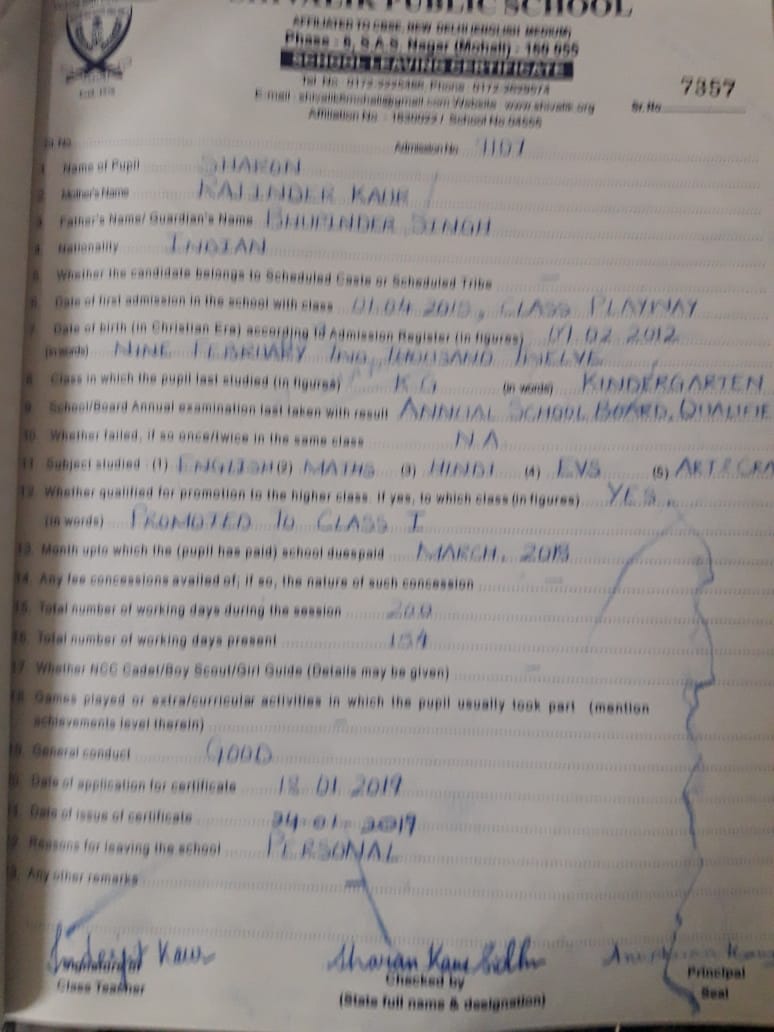 SHIVALIK PUBLIC SCHOOL
AFFILIATED TO CBSE, NEW DELHI (ENGLISH MEDIUM)
Phase - 6, S.A.S. Nagar (Mohali) - 160 055
SCHOOL LEAVING CERTIFICATE
7357
Sr. No.
Admission No. 9107
1. Name of Pupil SHARON
2. Mother's Name RAJINDER KAUR
3. Father's Name/ Guardian's Name BHUPINDER SINGH
4. Nationality INDIAN
5. Whether the candidate belongs to Scheduled Caste or Scheduled Tribe —
6. Date of first admission in the school with class 01.04.2015, CLASS PLAYWAY
7. Date of birth (in Christian Era) according to Admission Register (in figures) 09.02.2012
(in words) NINE FEBRUARY TWO THOUSAND TWELVE
8. Class in which the pupil last studied (in figures) KG (in words) KINDERGARTEN
9. School/Board Annual examination last taken with result ANNUAL SCHOOL BOARD, QUALIFIE
10. Whether failed, if so once/twice in the same class N.A
11. Subject studied : (1) ENGLISH (2) MATHS (3) HINDI (4) EVS (5) ART & CRA
12. Whether qualified for promotion to the higher class. If yes, to which class (in figures) YES,
(in words) PROMOTED TO CLASS I
13. Month upto which the (pupil has paid) school dues paid MARCH, 2018
14. Any fee concessions availed of; if so, the nature of such concession —
15. Total number of working days during the session 200
16. Total number of working days present 154
17. Whether NCC Cadet/Boy Scout/Girl Guide (Details may be given) —
18. Games played or extra/curricular activities in which the pupil usually took part (mention
achievements level therein) —
19. General conduct GOOD
20. Date of application for certificate 18.01.2019
21. Date of issue of certificate 24-01-2019
22. Reasons for leaving the school PERSONAL
23. Any other remarks —
Kaur Sharan Kaur Sidhu
Signature of Checked by Principal
Class Teacher (State full name & designation) Seal